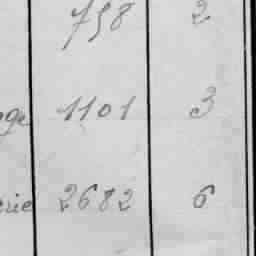 758 2
ge 1101 3
rie 2682 6